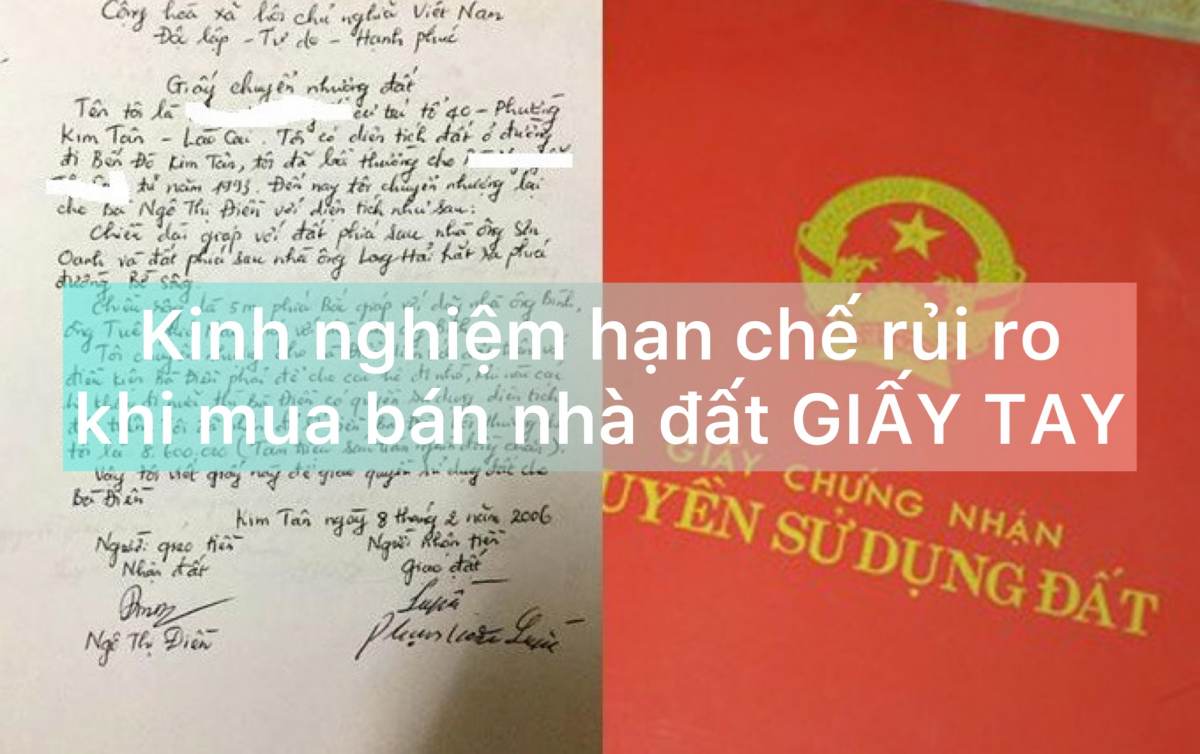 Cộng hoà xã hội chủ nghĩa Việt Nam
Độc lập - Tự do - Hạnh phúc
Giấy chuyển nhường đất
Tên tôi là cư trú tổ 40 - Phường
Kim Tân - Lào Cai. Tôi có diện tích đất ở đường
đi Bến Đò Kim Tân, tôi đã bồi thường cho
từ năm 1993. Đến nay tôi chuyển nhượng lại
cho Bà Ngô Thị Điền với diện tích như sau:
Chiều dài giáp với đất phía sau nhà ông Sơn
Oanh và đất phía sau nhà ông Long Hải hắt ra phía
đường Bờ sông.
Chiều rộng là 5m phía Bắc giáp với đất nhà ông Bình,
ông Tuê
Kinh nghiệm hạn chế rủi ro
khi mua bán nhà đất GIẤY TAY
tôi là 8.600.000 (Tám triệu sáu trăm nghìn đồng chẵn).
Vậy tôi viết giấy này để giao quyền sử dụng đất cho
Bà Điền
Kim Tân ngày 8 tháng 2 năm 2006
Người giao tiền
Nhận đất
Người nhận tiền
giao đất
Ngô Thị Điền
GIẤY CHỨNG NHẬN
UYỀN SỬ DỤNG ĐẤT